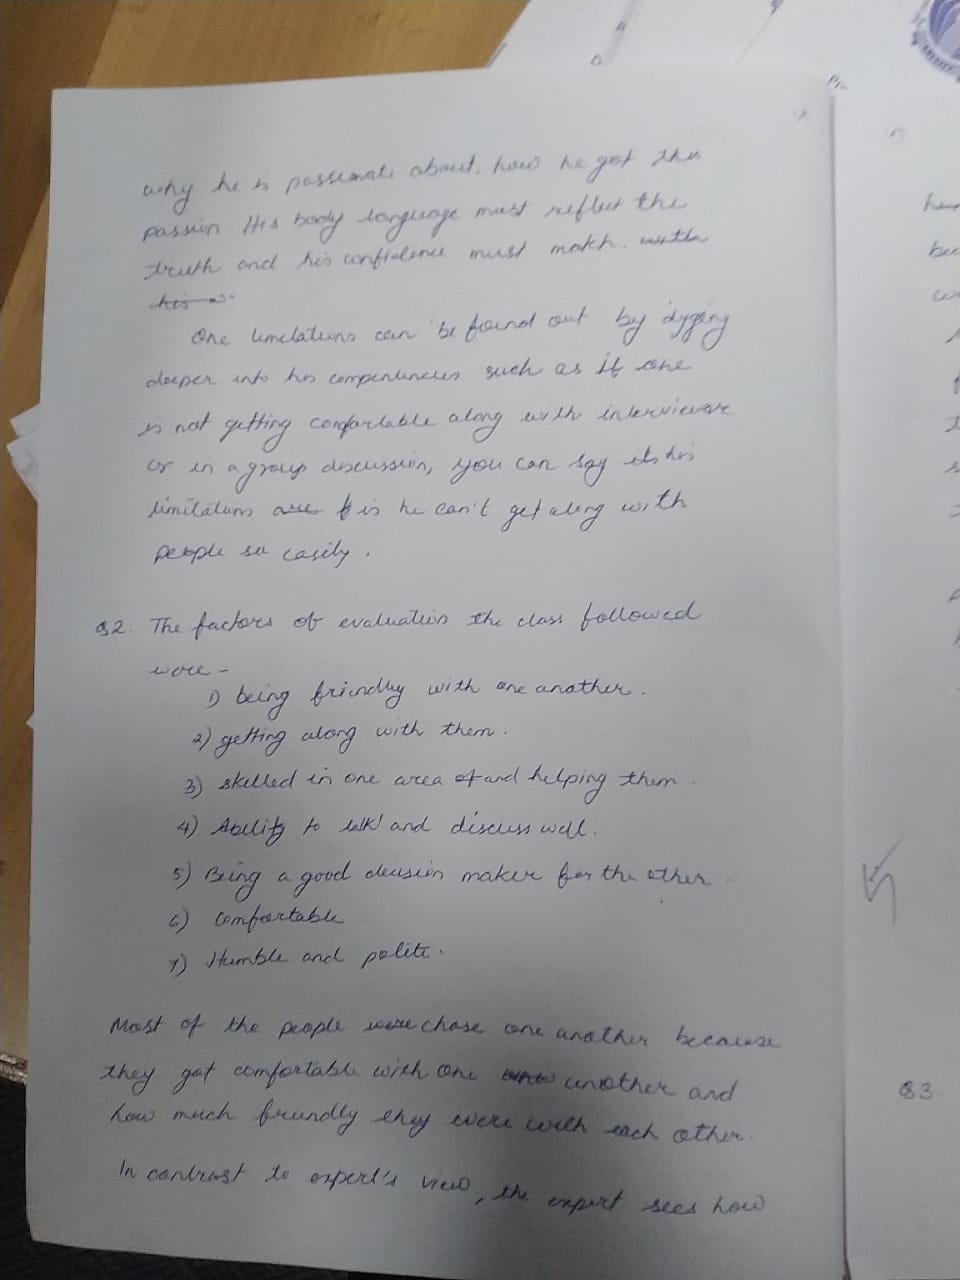 why he is passionate about, how he got this
passion. His body language must reflect the
truth and his confidence must match. with
his
One limelations can be found out by digging
deeper into his compentencies such as if one
is not getting comfortable along with interviewer
or in a group discussion, you can say its his
limitations is he can't get along with
people so easily.
Q2. The factors of evaluation the class followed
were -
1) being friendly with one another.
2) getting along with them.
3) skilled in one area of and helping them.
4) Ability to talk and discuss well.
5) Being a good decision maker for the other.
6) Comfortable
7) Humble and polite.
Most of the people were chose one another because
they got comfortable with one another and
how much friendly they were with each other.
In contrast to expert's view, the expert sees how
Q3.